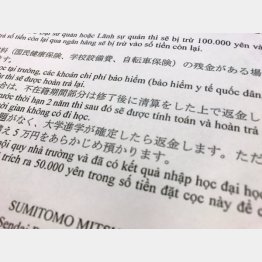 sự quán hoặc Lãnh sự quán thì sẽ bị trừ 100.000 yên và
qua ngân hàng sẽ bị trừ vào số tiền còn lại.
料（国民健康保険、学校設備費、自転車保険）の残金がある場
học tại trường, các khoản chi phí bảo hiểm (bảo hiểm y tế quốc dân
thì sẽ được hoàn trả lại.
合は、不在籍期間部分は修了後に清算をした上で返金し
trước thời hạn 2 năm thì sau đó sẽ được tính toán và hoàn trả
gian không có đi học.
題がなく、大学進学が確定したら返金します。ただ
え5万円をあらかじめ預かります。
nội quy nhà trường và đã có kết quả nhập học đại học
trích ra 50.000 yên trong số tiền đặt cọc này để
SUMITOMO MITSU
Sendai